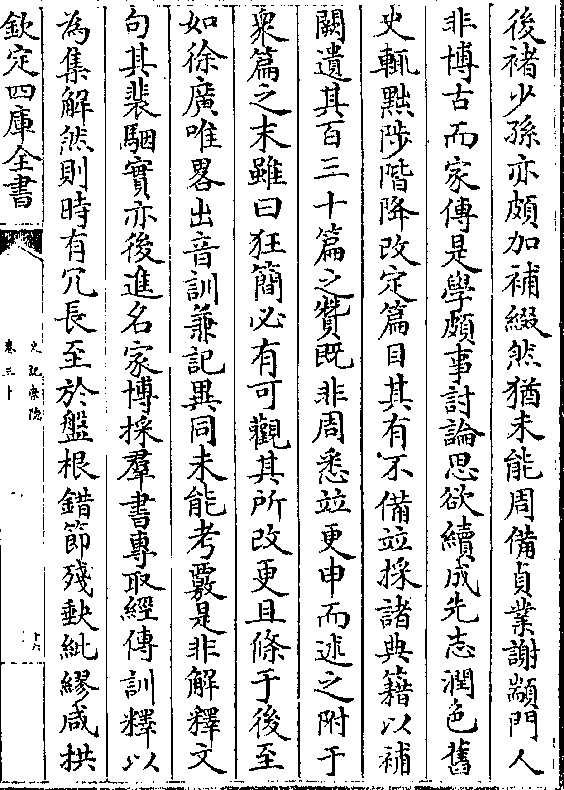 後褚少孫亦頗加補綴然猶未能周備貞業謝顓門人
非博古而家傳是學頗事討論思欲續成先志潤色舊
史輒黜陟階降改定篇目其有不備竝採諸典籍以補
闕遺其百三十篇之贊既非周悉竝更申而述之附于
衆篇之末雖曰狂簡必有可觀其所改更且條于後至
如徐廣唯畧出音訓兼記異同未能考覈是非解釋文
句其裴駰實亦後進名家博採羣書專取經傳訓釋以
為集解然則時有冗長至於盤根錯節殘缺紕繆咸拱
欽定四庫全書
史記索隱
卷三十
十六